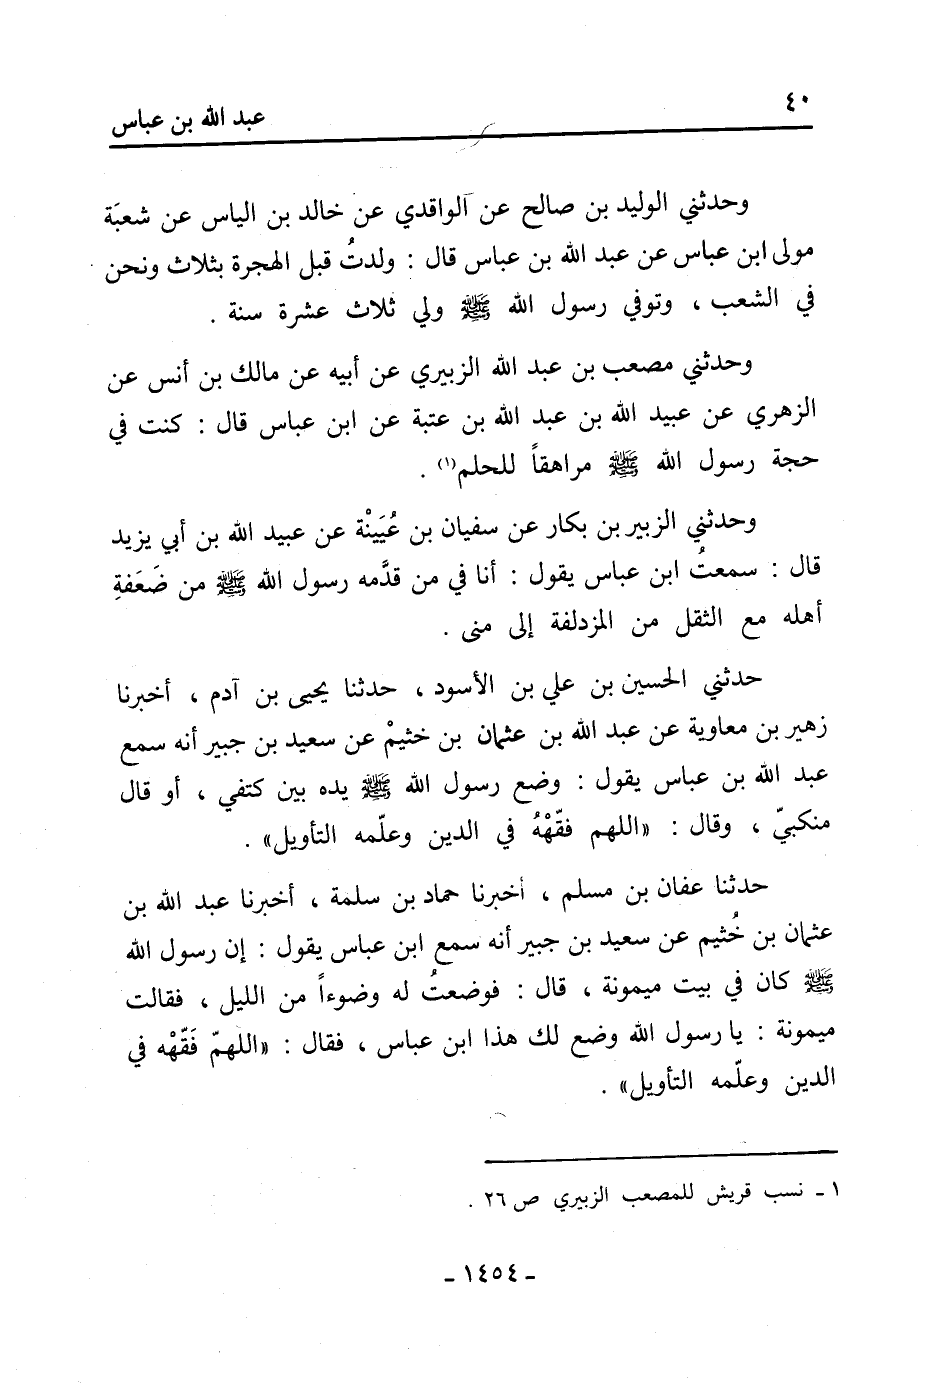 ٤٠
عبد الله بن عباس
وحدثني الوليد بن صالح عن الواقدي عن خالد بن الياس عن شعبَة
مولى ابن عباس عن عبد الله بن عباس قال : ولدتُ قبل الهجرة بثلاث ونحن
في الشعب ، وتوفي رسول الله ﷺ ولي ثلاث عشرة سنة .
وحدثني مصعب بن عبد الله الزبيري عن أبيه عن مالك بن أنس عن
الزهري عن عبيد الله بن عبد الله بن عتبة عن ابن عباس قال : كنت في
حجة رسول الله ﷺ مراهقاً للحلم(١) .
وحدثني الزبير بن بكار عن سفيان بن عُيَينْة عن عبيد الله بن أبي يزيد
قال : سمعتُ ابن عباس يقول : أنا في من قدَّمه رسول الله ﷺ من ضَعَفةِ
أهله مع الثقل من المزدلفة إلى منى .
حدثني الحسين بن علي بن الأسود ، حدثنا يحيى بن آدم ، أخبرنا
زهير بن معاوية عن عبد الله بن عثمان بن خثيمْ عن سعيد بن جبير أنه سمع
عبد الله بن عباس يقول : وضع رسول الله ﷺ يده بين كتفي ، أو قال
منكبيّ ، وقال : «اللهم فقّهْهُ في الدين وعلّمه التأويل» .
حدثنا عفان بن مسلم ، أخبرنا حماد بن سلمة ، أخبرنا عبد الله بن
عثمان بن خُثيم عن سعيد بن جبير أنه سمع ابن عباس يقول : إن رسول الله
ﷺ كان في بيت ميمونة ، قال : فوضعتُ له وضوءاً من الليل ، فقالت
ميمونة : يا رسول الله وضع لك هذا ابن عباس ، فقال : «اللهمّ فَقّهْه في
الدين وعلّمه التأويل» .
١ - نسب قريش للمصعب الزبيري ص ٢٦ .
- ١٤٥٤ -